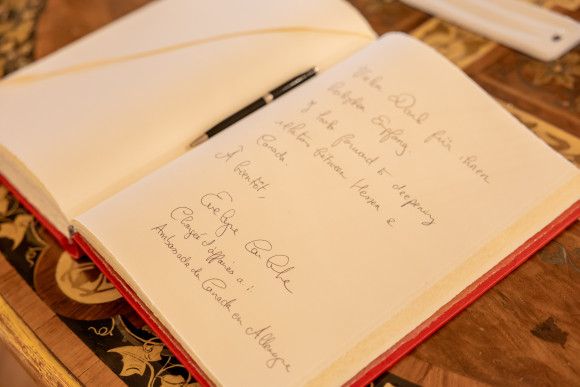 Vielen Dank für Ihren
herzlichen Empfang
I look forward to deepening
relations between Hessen &
Canada.
À bientôt,
Evelyne
Chargée d'affaires a.i
Ambassade du Canada en Allemagne